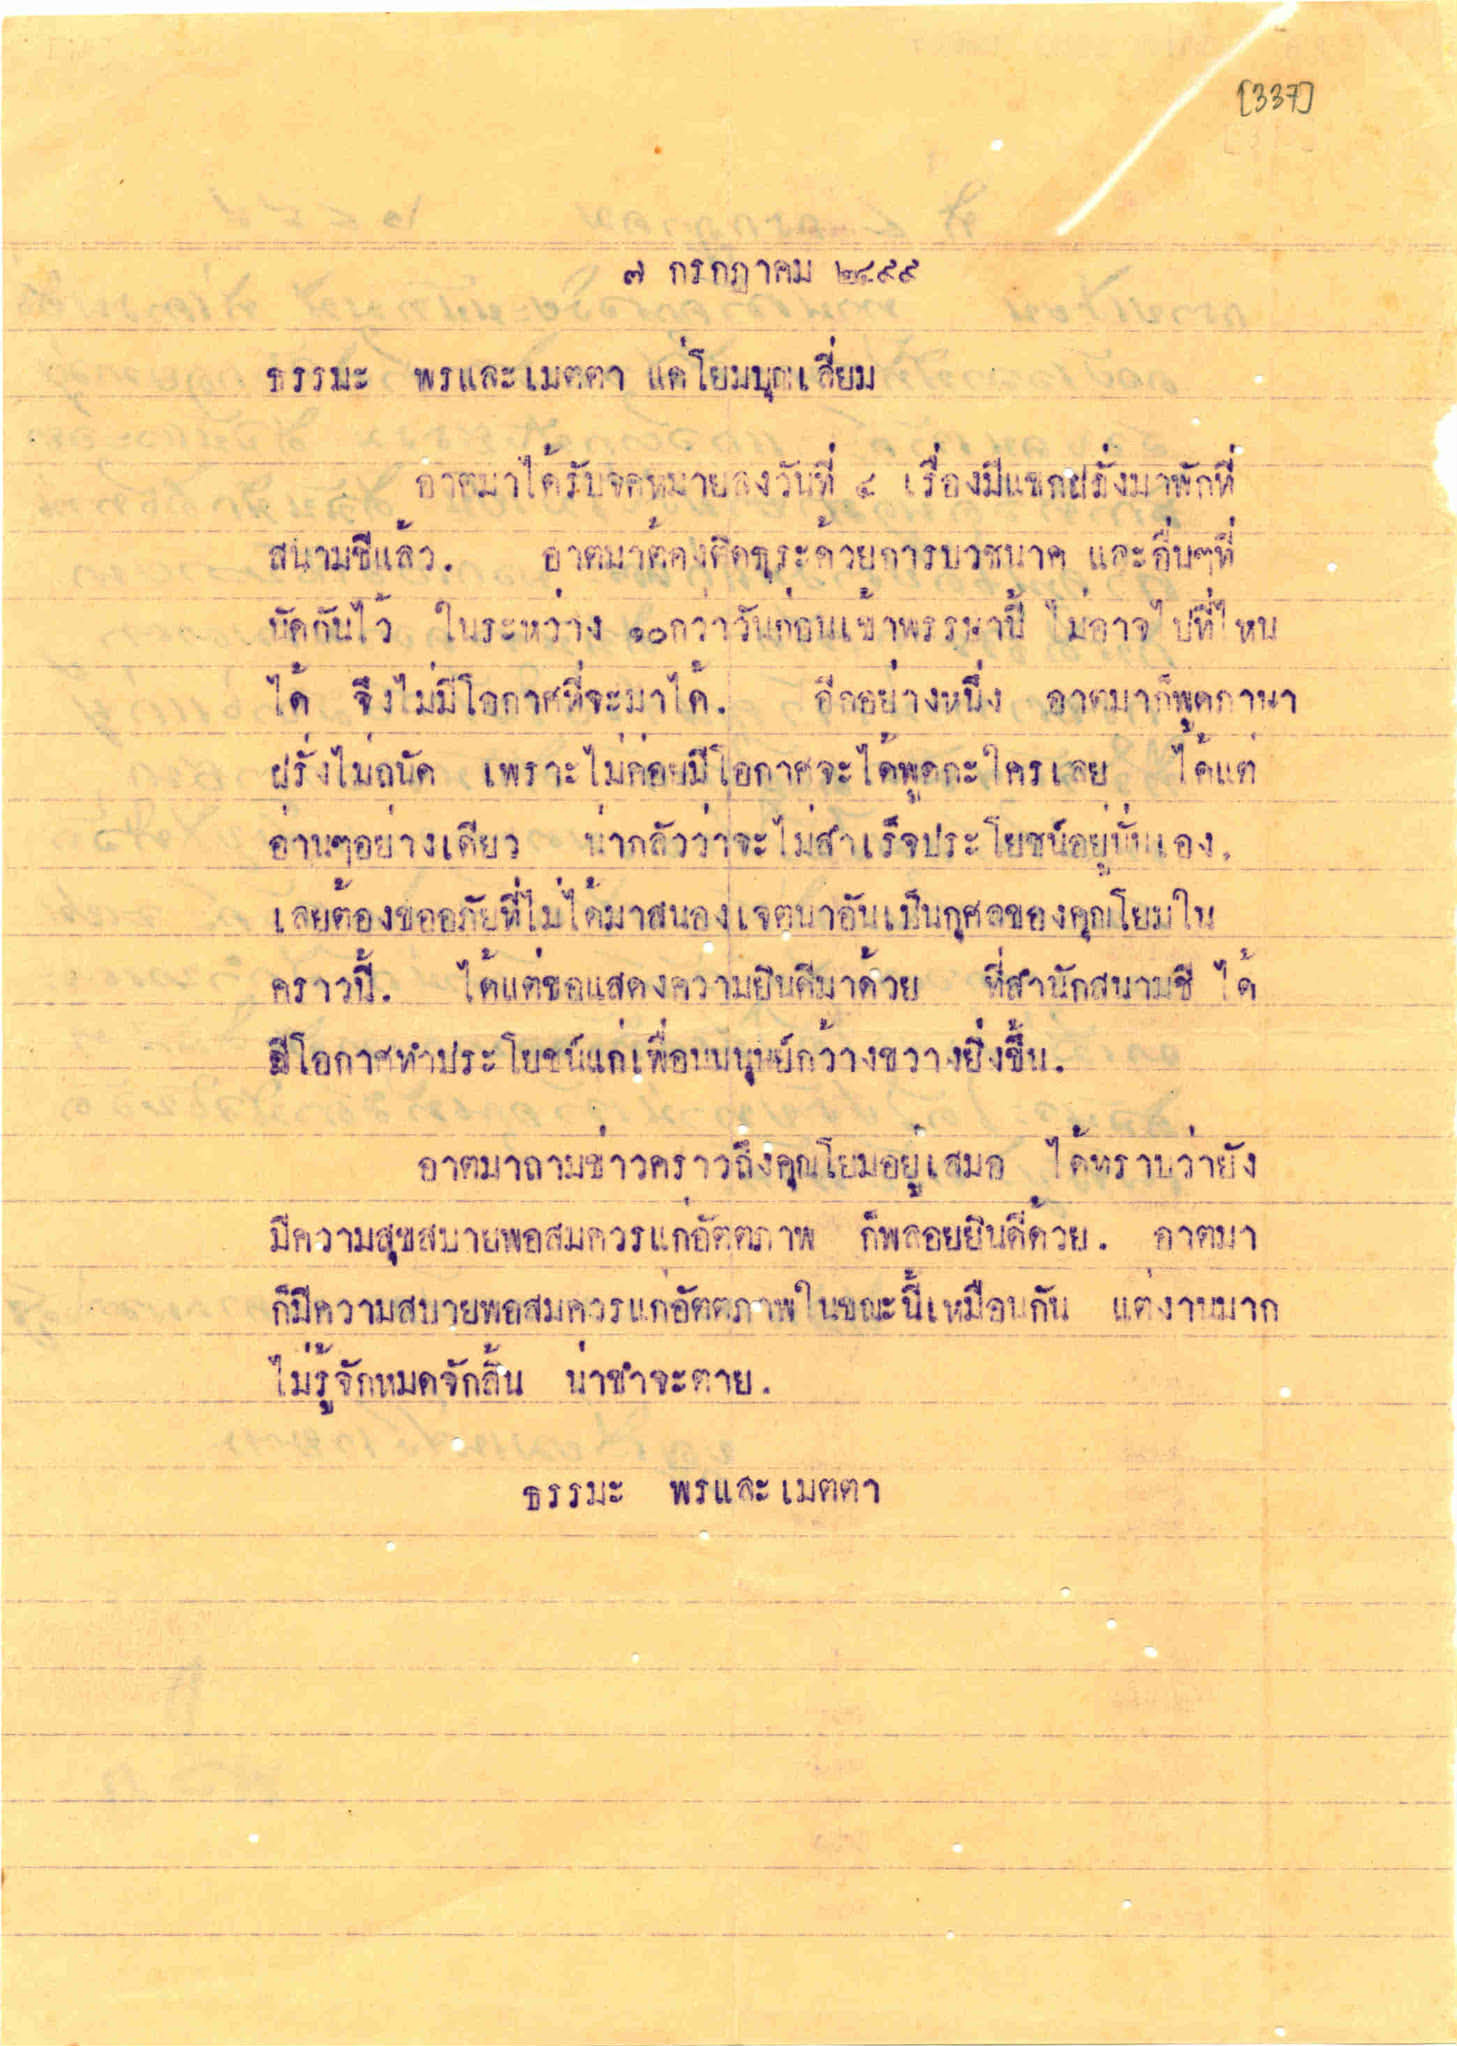 [337]
๗ กรกฎาคม ๒๔๙๙
ธรรมะ พรและเมตตา แด่โยมบุญเลี่ยม
อาตมาได้รับจดหมายลงวันที่ ๔ เรื่องมีแขกฝรั่งมาพักที่
สนามชีแล้ว. อาตมาต้องติดธุระด้วยการบวชนาค และอื่นๆที่
นัดกันไว้ ในระหว่าง ๑๐กว่าวันก่อนเข้าพรรษานี้ ไม่อาจไปที่ไหน
ได้ จึงไม่มีโอกาศที่จะมาได้. อีกอย่างหนึ่ง อาตมาก็พูดภาษา
ฝรั่งไม่ถนัด เพราะไม่ค่อยมีโอกาศจะได้พูดกะใครเลย ได้แต่
อ่านๆอย่างเดียว น่ากลัวว่าจะไม่สำเร็จประโยชน์อยู่นั่นเอง.
เลยต้องขออภัยที่ไม่ได้มาสนองเจตนาอันเป็นกุศลของคุณโยมใน
คราวนี้. ได้แต่ขอแสดงความยินดีมาด้วย ที่สำนักสนามชี ได้
มีโอกาศทำประโยชน์แก่เพื่อนมนุษย์กว้างขวางยิ่งขึ้น.
อาตมาถามข่าวคราวถึงคุณโยมอยู่เสมอ ได้ทราบว่ายัง
มีความสุขสบายพอสมควรแก่อัตตภาพ ก็พลอยยินดีด้วย. อาตมา
ก็มีความสบายพอสมควรแก่อัตตภาพในขณะนี้เหมือนกัน แต่งานมาก
ไม่รู้จักหมดจักสิ้น น่าขำจะตาย.
ธรรมะ พรและเมตตา